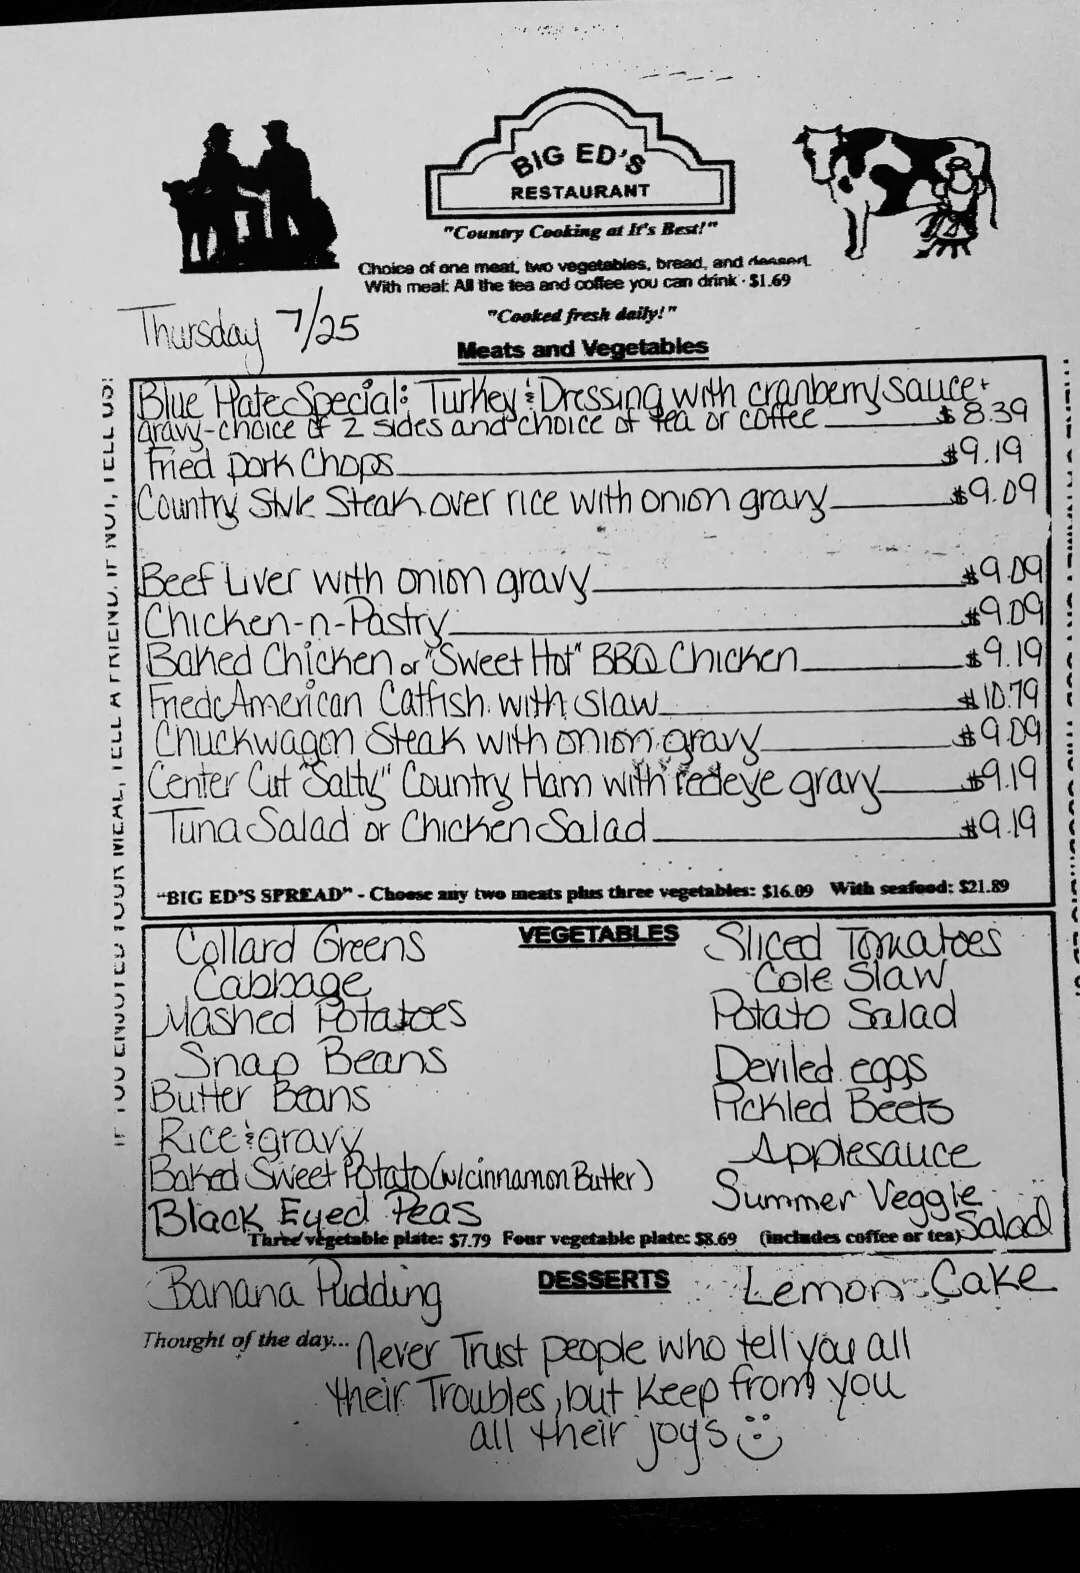 BIG ED'S
RESTAURANT
"Country Cooking at It's Best!"
Choice of one meat, two vegetables, bread, and dessert.
With meal: All the tea and coffee you can drink - $1.69
"Cooked fresh daily!"
Thursday 7/25
Meats and Vegetables
Blue Plate Special: Turkey & Dressing with cranberry sauce +
gravy-choice of 2 sides and choice of tea or coffee $8.39
Fried pork Chops $9.19
Country Style Steak over rice with onion gravy $9.09
Beef Liver with onion gravy $9.09
Chicken-n-Pastry $9.09
Baked Chicken or "Sweet Hot" BBQ Chicken $9.19
Fried American Catfish with slaw $10.79
Chuckwagon Steak with onion gravy $9.09
Center Cut "Salty" Country Ham with redeye gravy $9.19
Tuna Salad or Chicken Salad $9.19
"BIG ED'S SPREAD" - Choose any two meats plus three vegetables: $16.09 With seafood: $21.89
VEGETABLES
Collard Greens
Cabbage
Mashed Potatoes
Snap Beans
Butter Beans
Rice & gravy
Baked Sweet Potato (w/cinnamon Butter)
Black Eyed Peas
Sliced Tomatoes
Cole Slaw
Potato Salad
Deviled eggs
Pickled Beets
Applesauce
Summer Veggie
Salad
Three vegetable plate: $7.79 Four vegetable plate: $8.69 (includes coffee or tea)
DESSERTS
Banana Pudding
Lemon Cake
Thought of the day... Never Trust people who tell you all
their Troubles, but keep from you
all their joys
IF YOU ENJOYED YOUR MEAL, TELL A FRIEND. IF NOT, TELL US!